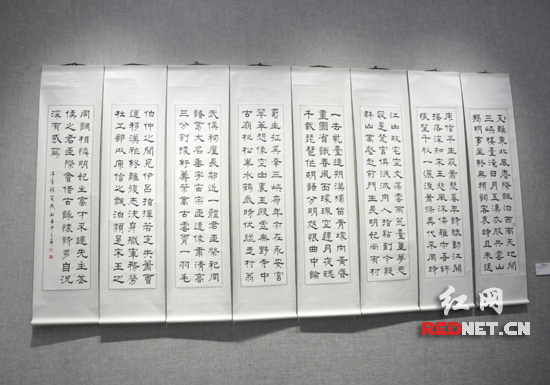 支離東北風塵際飄泊西南天地間
三峽樓臺淹日月五溪衣服共雲山
羯胡事主終無賴詞客哀時且未還
庾信平生最蕭瑟暮年詩賦動江關
搖落深知宋玉悲風流儒雅亦吾師
悵望千秋一灑淚蕭條異代不同時
江山故宅空文藻雲雨荒臺豈夢思
最是楚宮俱泯滅舟人指點到今疑
群山萬壑赴荊門生長明妃尚有村
一去紫臺連朔漠獨留青塚向黃昏
畫圖省識春風面環珮空歸月夜魂
千載琵琶作胡語分明怨恨曲中論
蜀主征吳幸三峽崩年亦在永安宮
翠華想像空山裏玉殿虛無野寺中
古廟杉松巢水鶴歲時伏臘走村翁
武侯祠屋長鄰近一體君臣祭祀同
諸葛大名垂宇宙宗臣遺像肅清高
三分割據紆籌策萬古雲霄一羽毛
伯仲之間見伊呂指揮若定失蕭曹
運移漢祚終難復志決身殲軍務勞
杜工部以庾信之飄泊類是宋玉之
同調相憐明妃生才不遇先主
侯之君臣際會借古跡懷詩多自況
深有感焉
红网
REDNET.CN